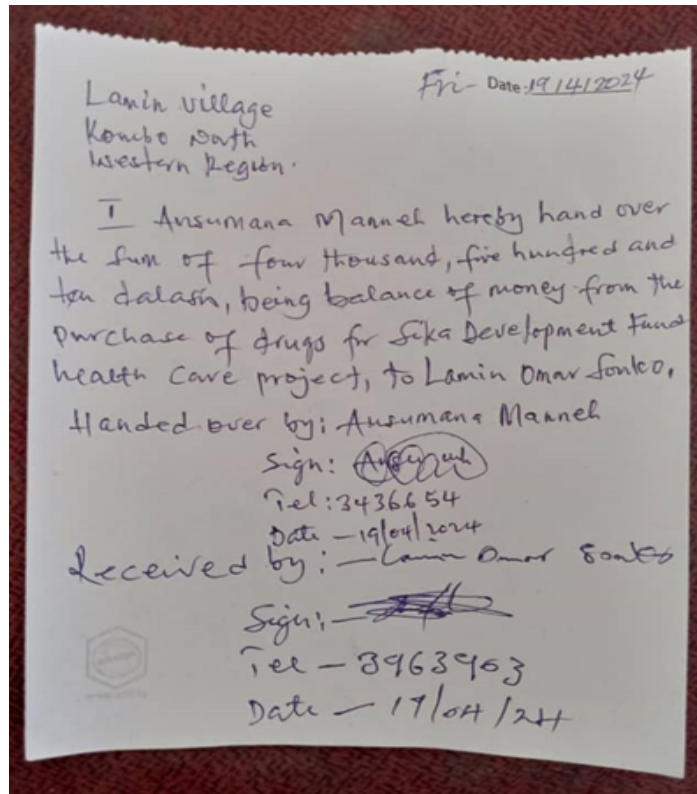 Fri- Date: 19/4/2024
Lamin village
Kombo North
Western Region.
I Ansumana Manneh hereby hand over
the sum of four thousand, five hundred and
ten dalasis, being balance of money from the
purchase of drugs for Sika Development Fund
health care project, to Lamin Omar Sonko.
Handed over by: Ansumana Manneh
Sign:
Tel: 3436654
Date - 19/04/2024
Received by: - Lamin Omar Sonko
Sign: -
Tel - 3963963
Date - 19/04/24